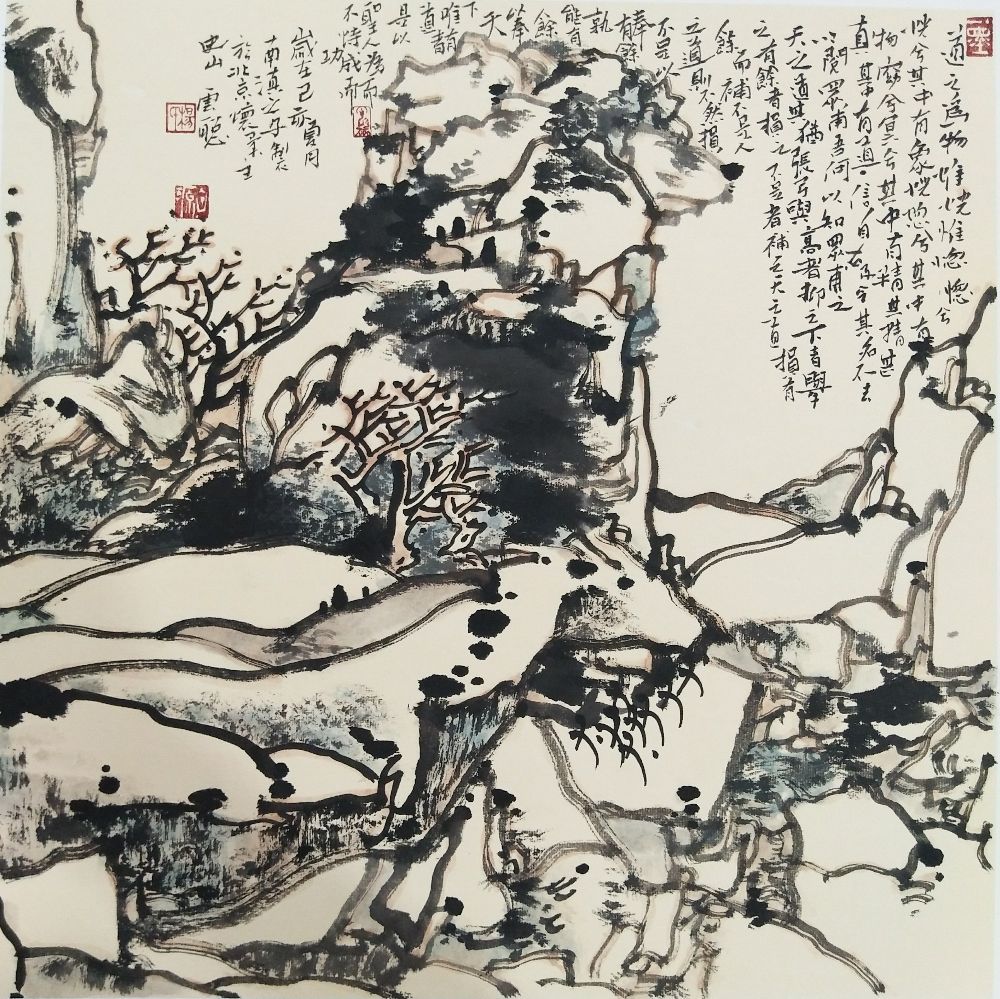 道之為物惟恍惟惚惚兮
恍兮其中有象恍惚兮其中有
物窈兮冥兮其中有精其精甚
真其中有信自古至今其名不去
以閱眾甫吾何以知眾甫之
天之道其猶張弓與高者抑之下者舉
之有餘者損之不足者補之天之道損有
餘而補不足人
之道則不然損
不足以
奉有餘
孰
能有
餘
奉
天
下
唯有
道
是以
聖人為而
不恃成而
功
歲在己亥夏月
南滇之子製
於北京懷柔
雲聰